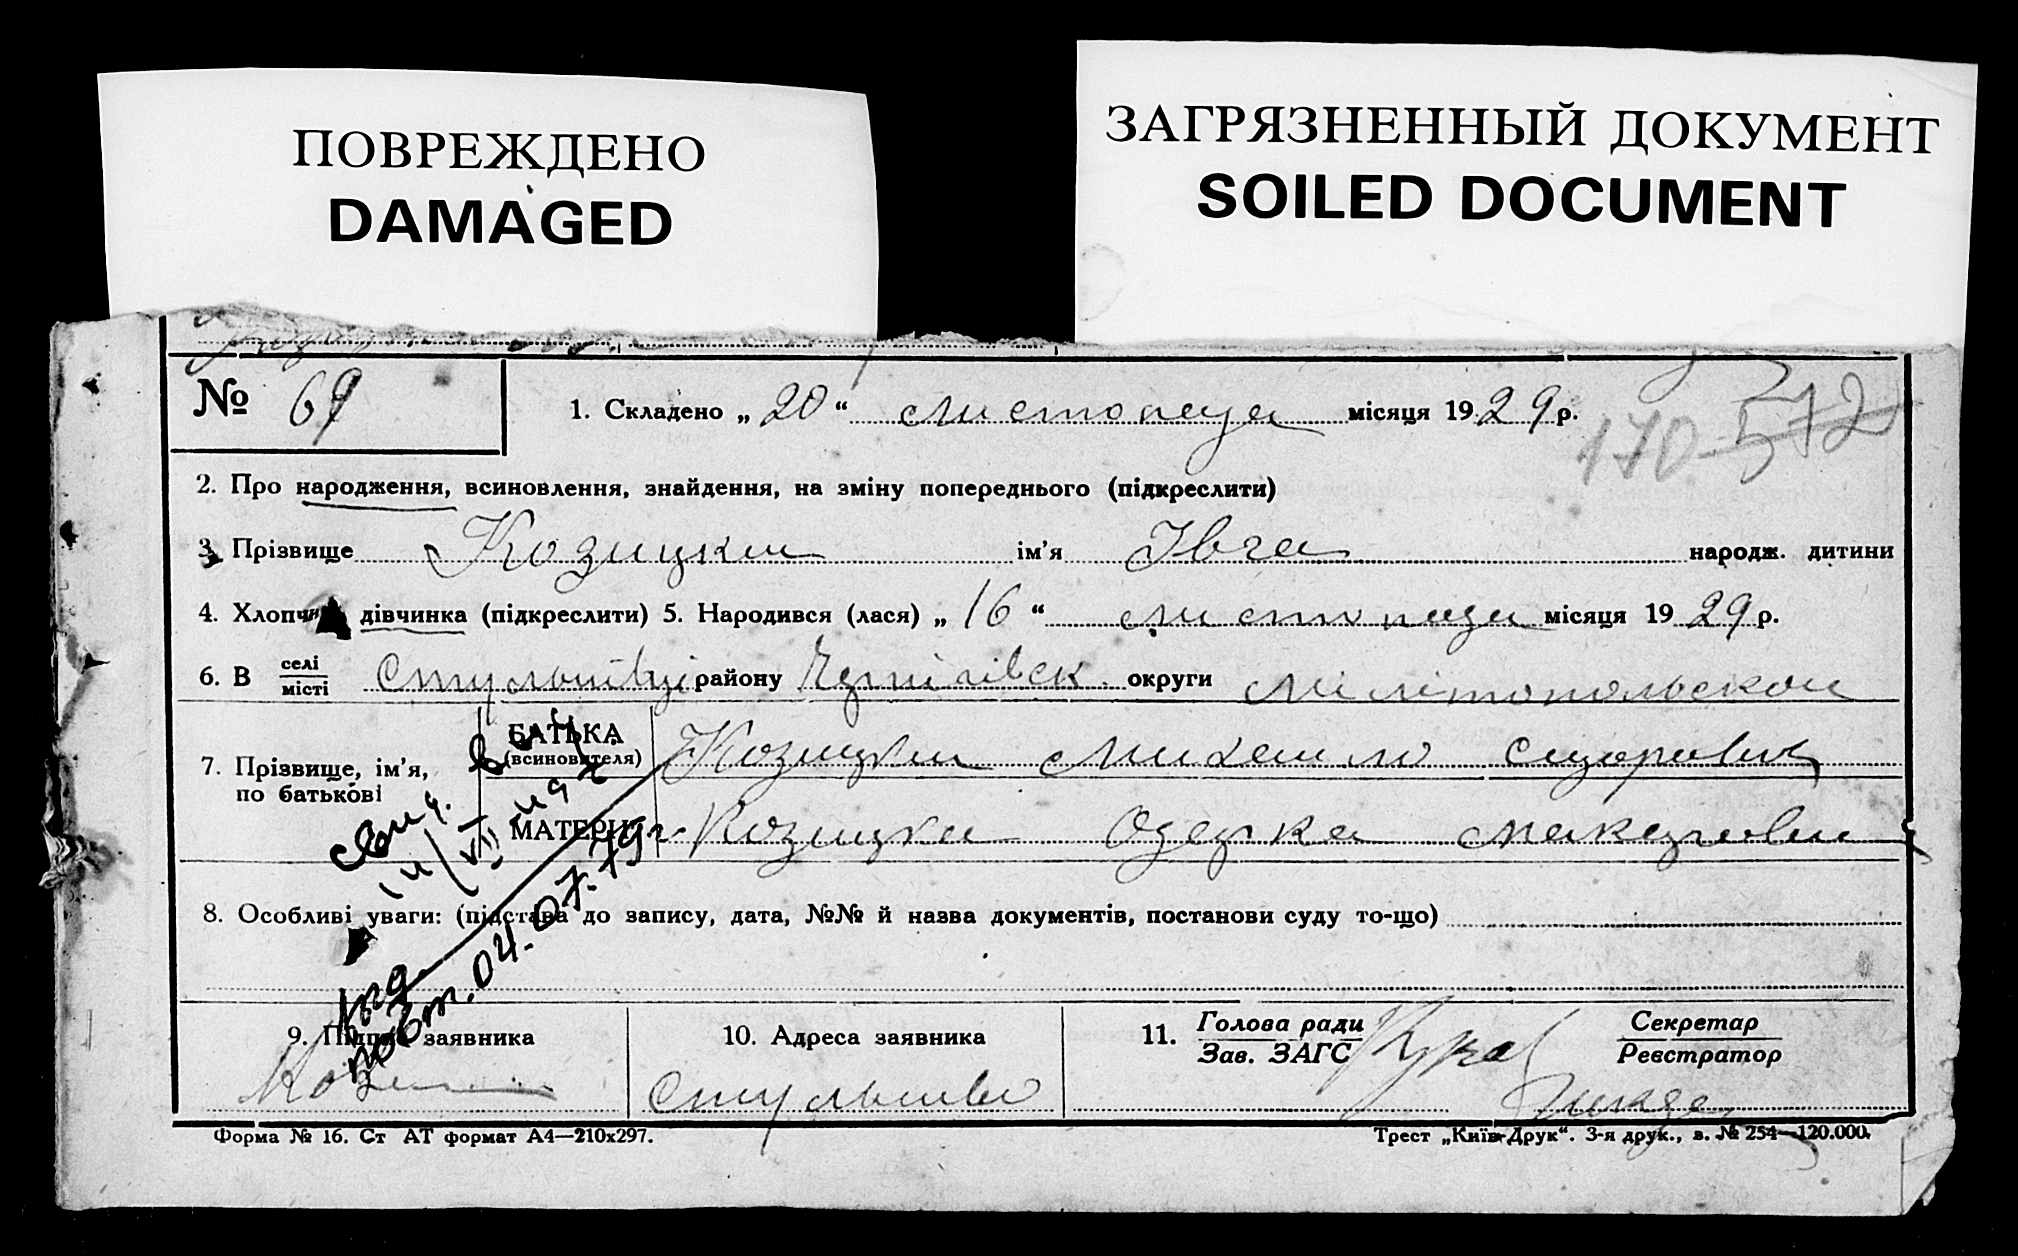 ПОВРЕЖДЕНО
DAMAGED
ЗАГРЯЗНЕННЫЙ ДОКУМЕНТ
SOILED DOCUMENT
№ 69
1. Складено „ 20 “ листопада місяця 1929 р.
170 572
2. Про народження, всиновлення, знайдення, на зміну попереднього (підкреслити)
3. Прізвище Козицки ім'я Івга народж. дитини
4. Хлопчик дівчинка (підкреслити) 5. Народився (лася) „ 16 “ листопада місяця 1929 р.
6. В селі місті району округи Мілітопольскои
7. Прізвище, ім'я, по батькові
БАТЬКА (всиновителя) Козицки Михаило Сидорович
МАТЕРИ Козицка Одарка Макаровни
8. Особливі уваги: (підстава до запису, дата, №№ й назва документів, постанови суду то-що)
свид.
повт. 04.07.79г.
9. Підпис заявника
10. Адреса заявника
11. Голова ради
Зав. ЗАГС
Секретар
Реєстратор
Форма № 16. Ст АТ формат А4—210х297.
Трест „Київ-Друк“. 3-я друк., в. № 254—120.000.